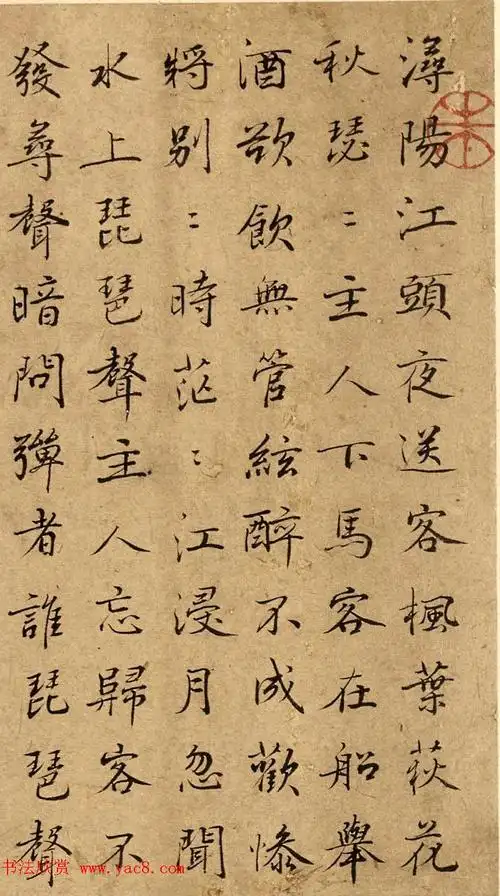 潯陽江頭夜送客楓葉荻花
秋瑟〻主人下馬客在船舉
酒欲飲無管絃醉不成歡慘
將別〻時茫〻江浸月忽聞
水上琵琶聲主人忘歸客不
發尋聲暗問彈者誰琵琶聲
书法欣赏 www.yac8.com